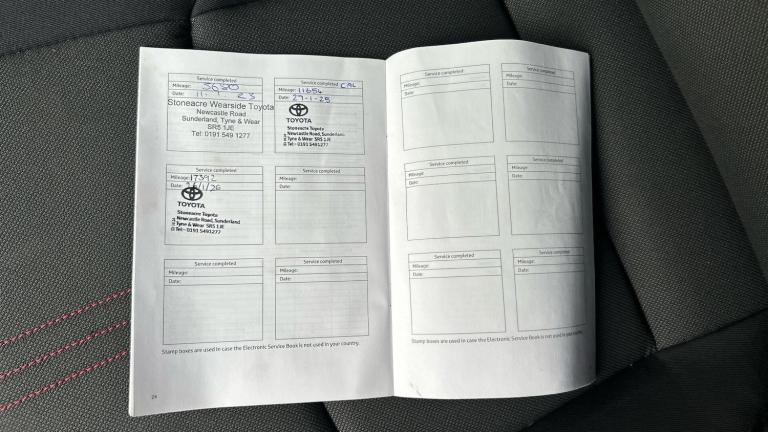 Service completed
Mileage: 3630
Date: 11. 9. 23
Stoneacre Wearside Toyota
Newcastle Road
Sunderland, Tyne & Wear
SR5 1JE
Tel: 0191 549 1277
Service completed CAL
Mileage: 11654
Date: 27-1-25
TOYOTA
Stoneacre Toyota
Newcastle Road, Sunderland
Tyne & Wear SR5 1JE
Tel:- 0191 5491277
Service completed
Mileage: 17392
Date: 26/1/26
TOYOTA
Stoneacre Toyota
Newcastle Road, Sunderland
Tyne & Wear SR5 1JE
Tel:- 0191 5491277
Service completed
Mileage:
Date:
Service completed
Mileage:
Date:
Service completed
Mileage:
Date:
Stamp boxes are used in case the Electronic Service Book is not used in your country.
24
Service completed
Mileage:
Date:
Service completed
Mileage:
Date:
Service completed
Mileage:
Date:
Service completed
Mileage:
Date:
Service completed
Mileage:
Date:
Service completed
Mileage:
Date:
Stamp boxes are used in case the Electronic Service Book is not used in your country.